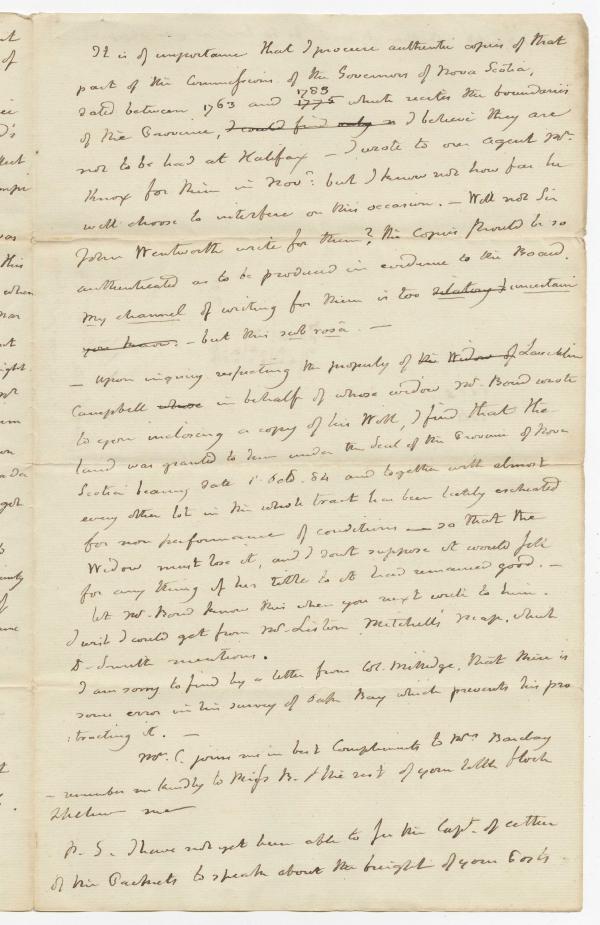 It is of importance that I procure authentic copies of that
part of the Commissions of the Governors of Nova Scotia,
dated between 1763 and 1775 1783 which recites the boundaries
of the Province, I could find only I believe they are
not to be had at Halifax – I wrote to our agent Mr.
Knox for them in Novr. but I know not how far he
will choose to interfere on this occasion. – Will not Sir
John Wentworth write for them? the Copies should be so
authenticated as to be produced in evidence to the Board.
My channel of writing for them is too dilatory & uncertain
you know. – but this sub rosâ. –
– Upon inquiry respecting the property of the Widow of Lauchlin
Campbell whose in behalf of whose widow Mr. Bond wrote
to you inclosing a copy of his Will, I find that the
land was granted to him under the Seal of the Province of Nova
Scotia bearing date 1. Octo. 84 and together with almost
every other lot in the whole tract has been lately escheated
for non performance of conditions so that the
Widow must lose it, and I dont suppose it would sell
for any thing if her title to it had remained good. –
let Mr. Bond know this when you next write to him.
I wish I could get from Mr. Liston Mitchell's map, which
D. Smith mentions.
I am sorry to find by a letter from Col. Millidge, that there is
some error in his survey of Oak Bay which prevents his pro
:tracting it. –
Mrs. C. joins me in best Compliments to Mrs. Barclay
– remember me kindly to Miss B. & the rest of your little flock
me
P. S. I have not yet been able to see the Capt. of either
of the Packets to speak about the freight of your